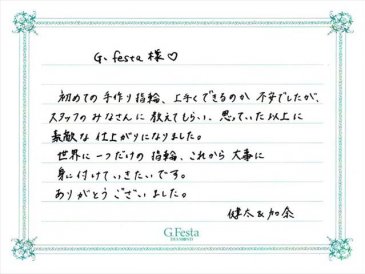 G. festa 様♡
初めての手作り指輪、上手くできるのか不安でしたが、
スタッフのみなさんに教えてもらい、思っていた以上に
素敵な仕上がりになりました。
世界に一つだけの指輪、これから大事に
身に付けていきたいです。
ありがとうございました。
健太&加奈
G.Festa
DIAMOND